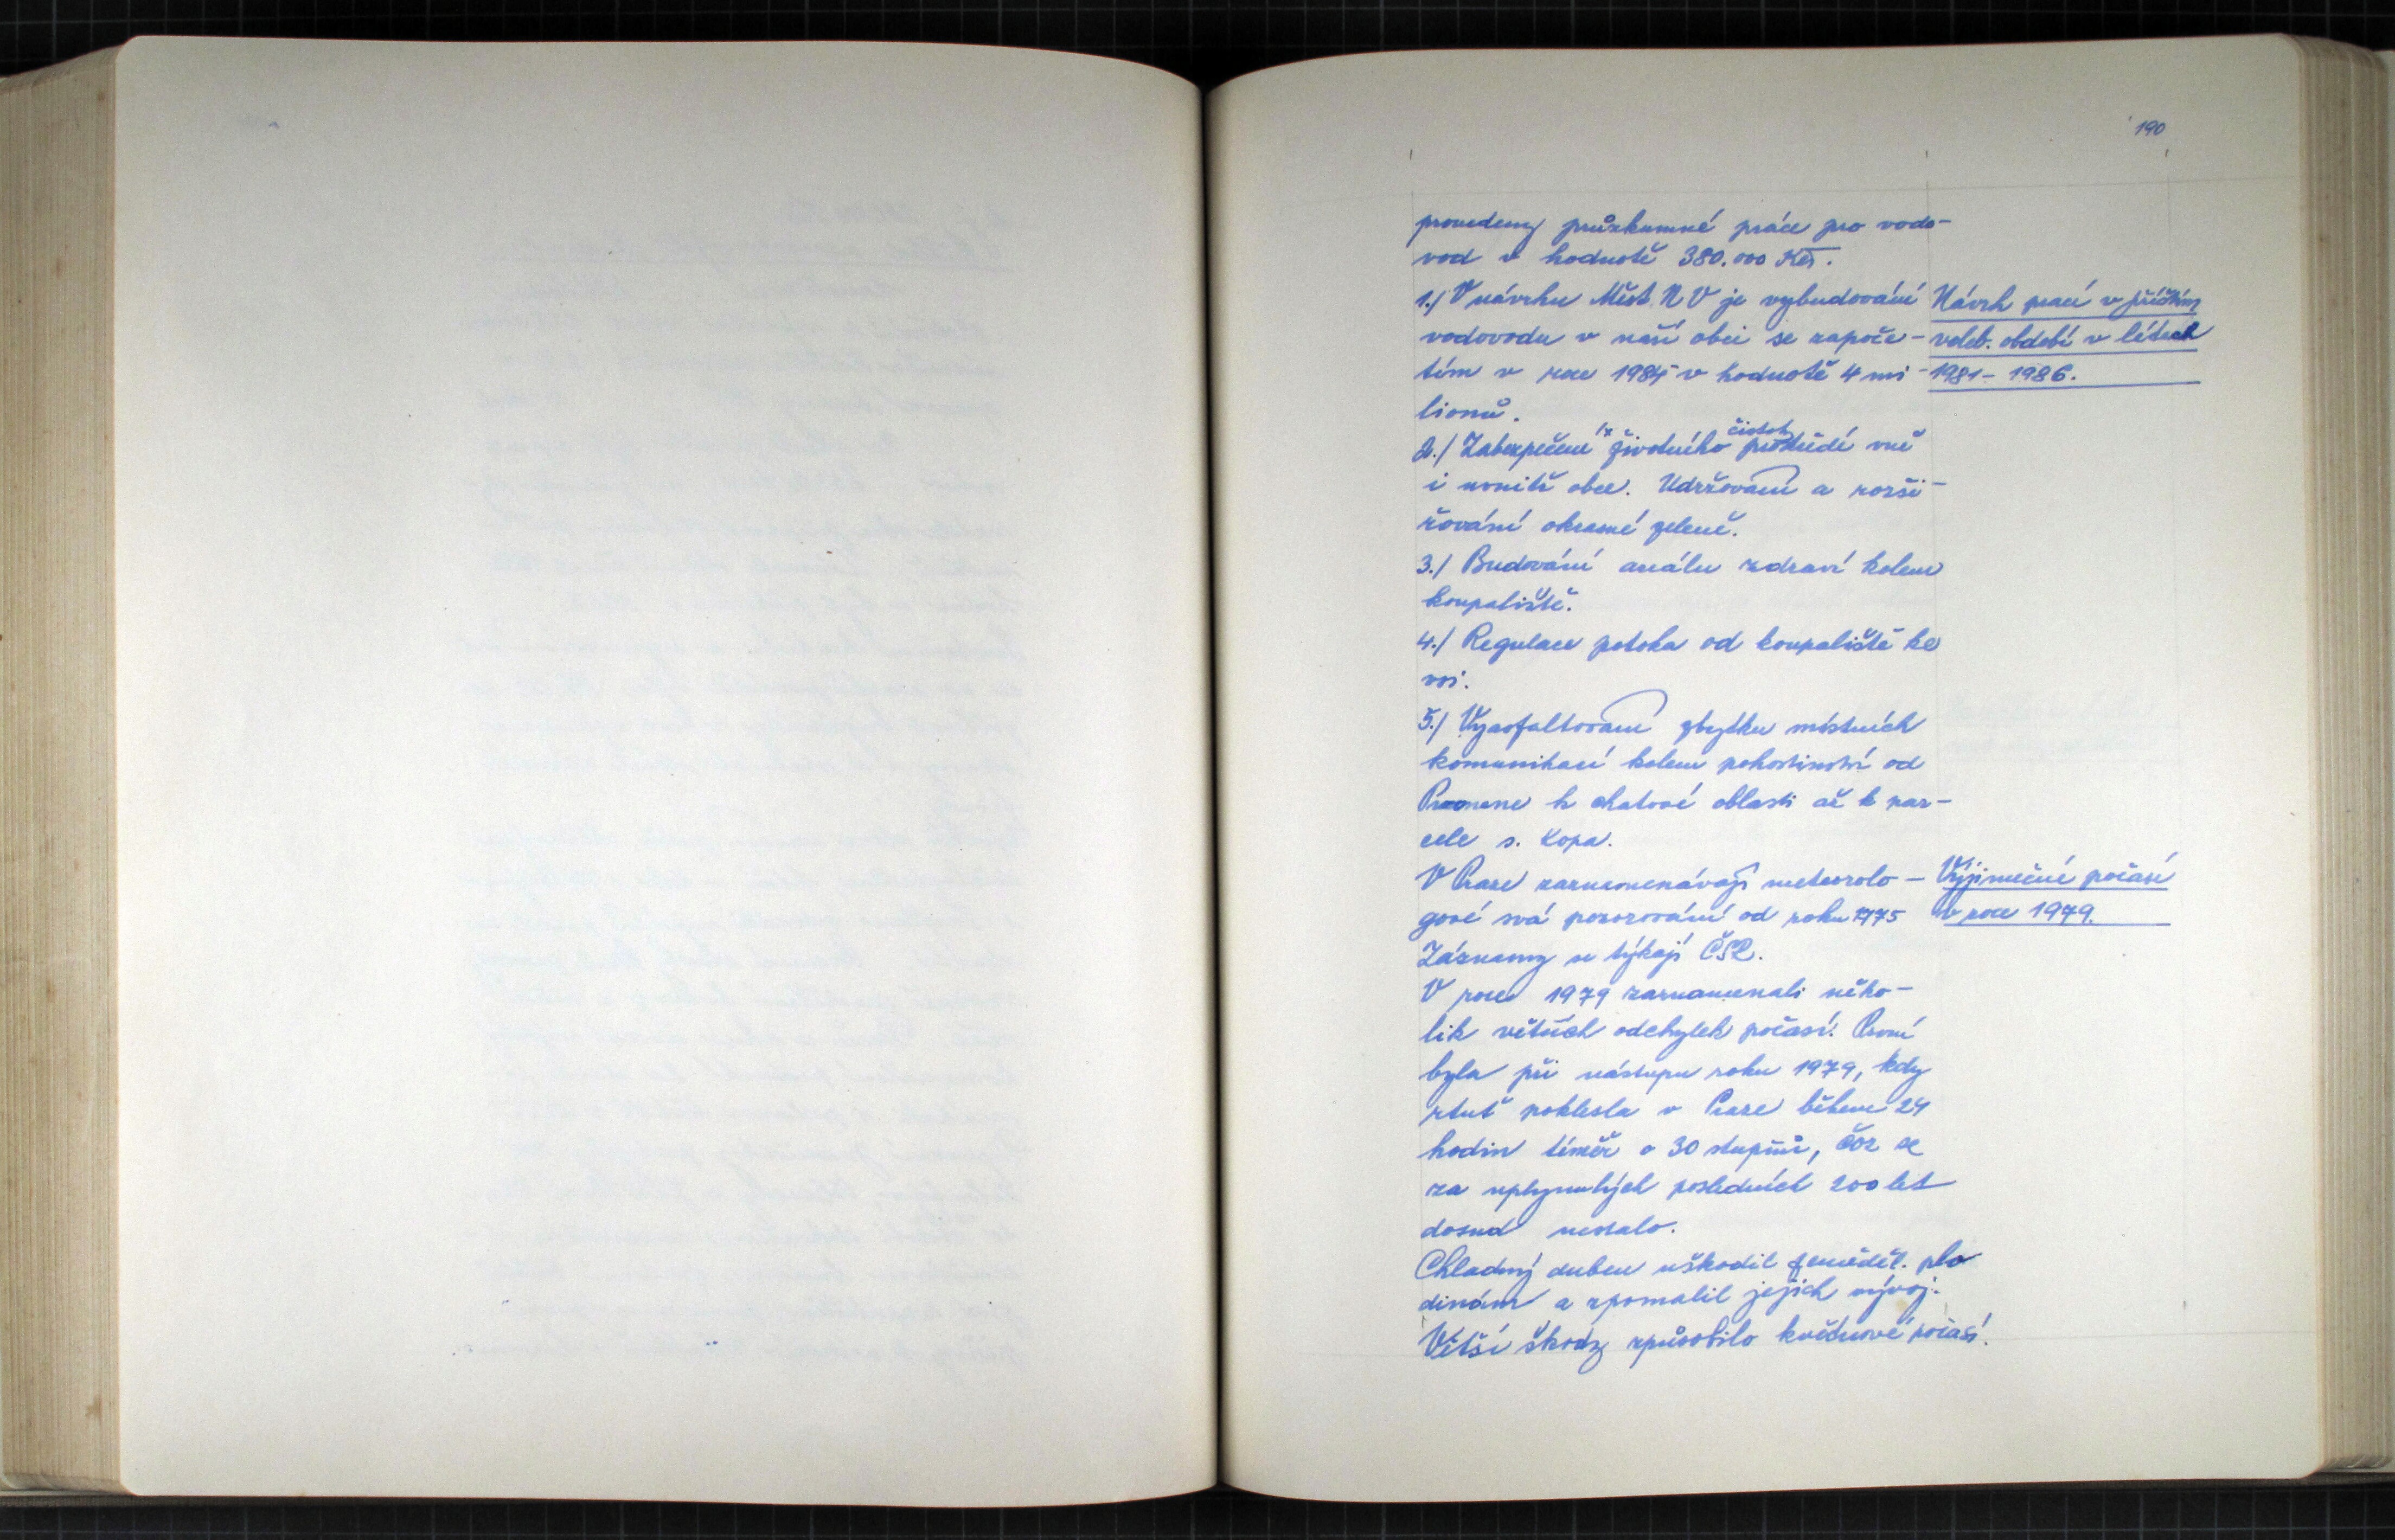 190
provedeny průzkumné práce pro vodo-
vod v hodnotě 380.000 Kčs.
1./ V návrhu Míst. N V je vybudování
vodovodu v naší obci se započe-
tím v roce 1985 v hodnotě 4 mi-
lionů.
Návrh prací v příštím
voleb. období v létech
1981 - 1986.
čistoty
2./ Zabezpečení životního prostředí vně
i uvnitř obce. Udržování a rozši-
řování okrasné zeleně.
3./ Budování areálu zdraví kolem
koupaliště.
4./ Regulace potoka od koupaliště ke
vsi.
5./ Vyasfaltování zbytku místních
komunikací kolem pohostinství od
Pramene k chatové oblasti až k par-
cele s. Kopa.
V Praze zaznamenávají meteorolo-
gové svá pozorování od roku 1775
Záznamy se týkají ČSR.
Výjimečné počasí
v roce 1979.
V roce 1979 zaznamenali něko-
lik větších odchylek počasí. První
byla při nástupu roku 1979, kdy
rtuť poklesla v Praze během 24
hodin téměř o 30 stupňů, což se
za uplynulých posledních 200 let
dosud nestalo.
Chladný duben uškodil zeměděl. plo
dinám a zpomalil jejich vývoj.
Větší škody způsobilo květnové počasí.